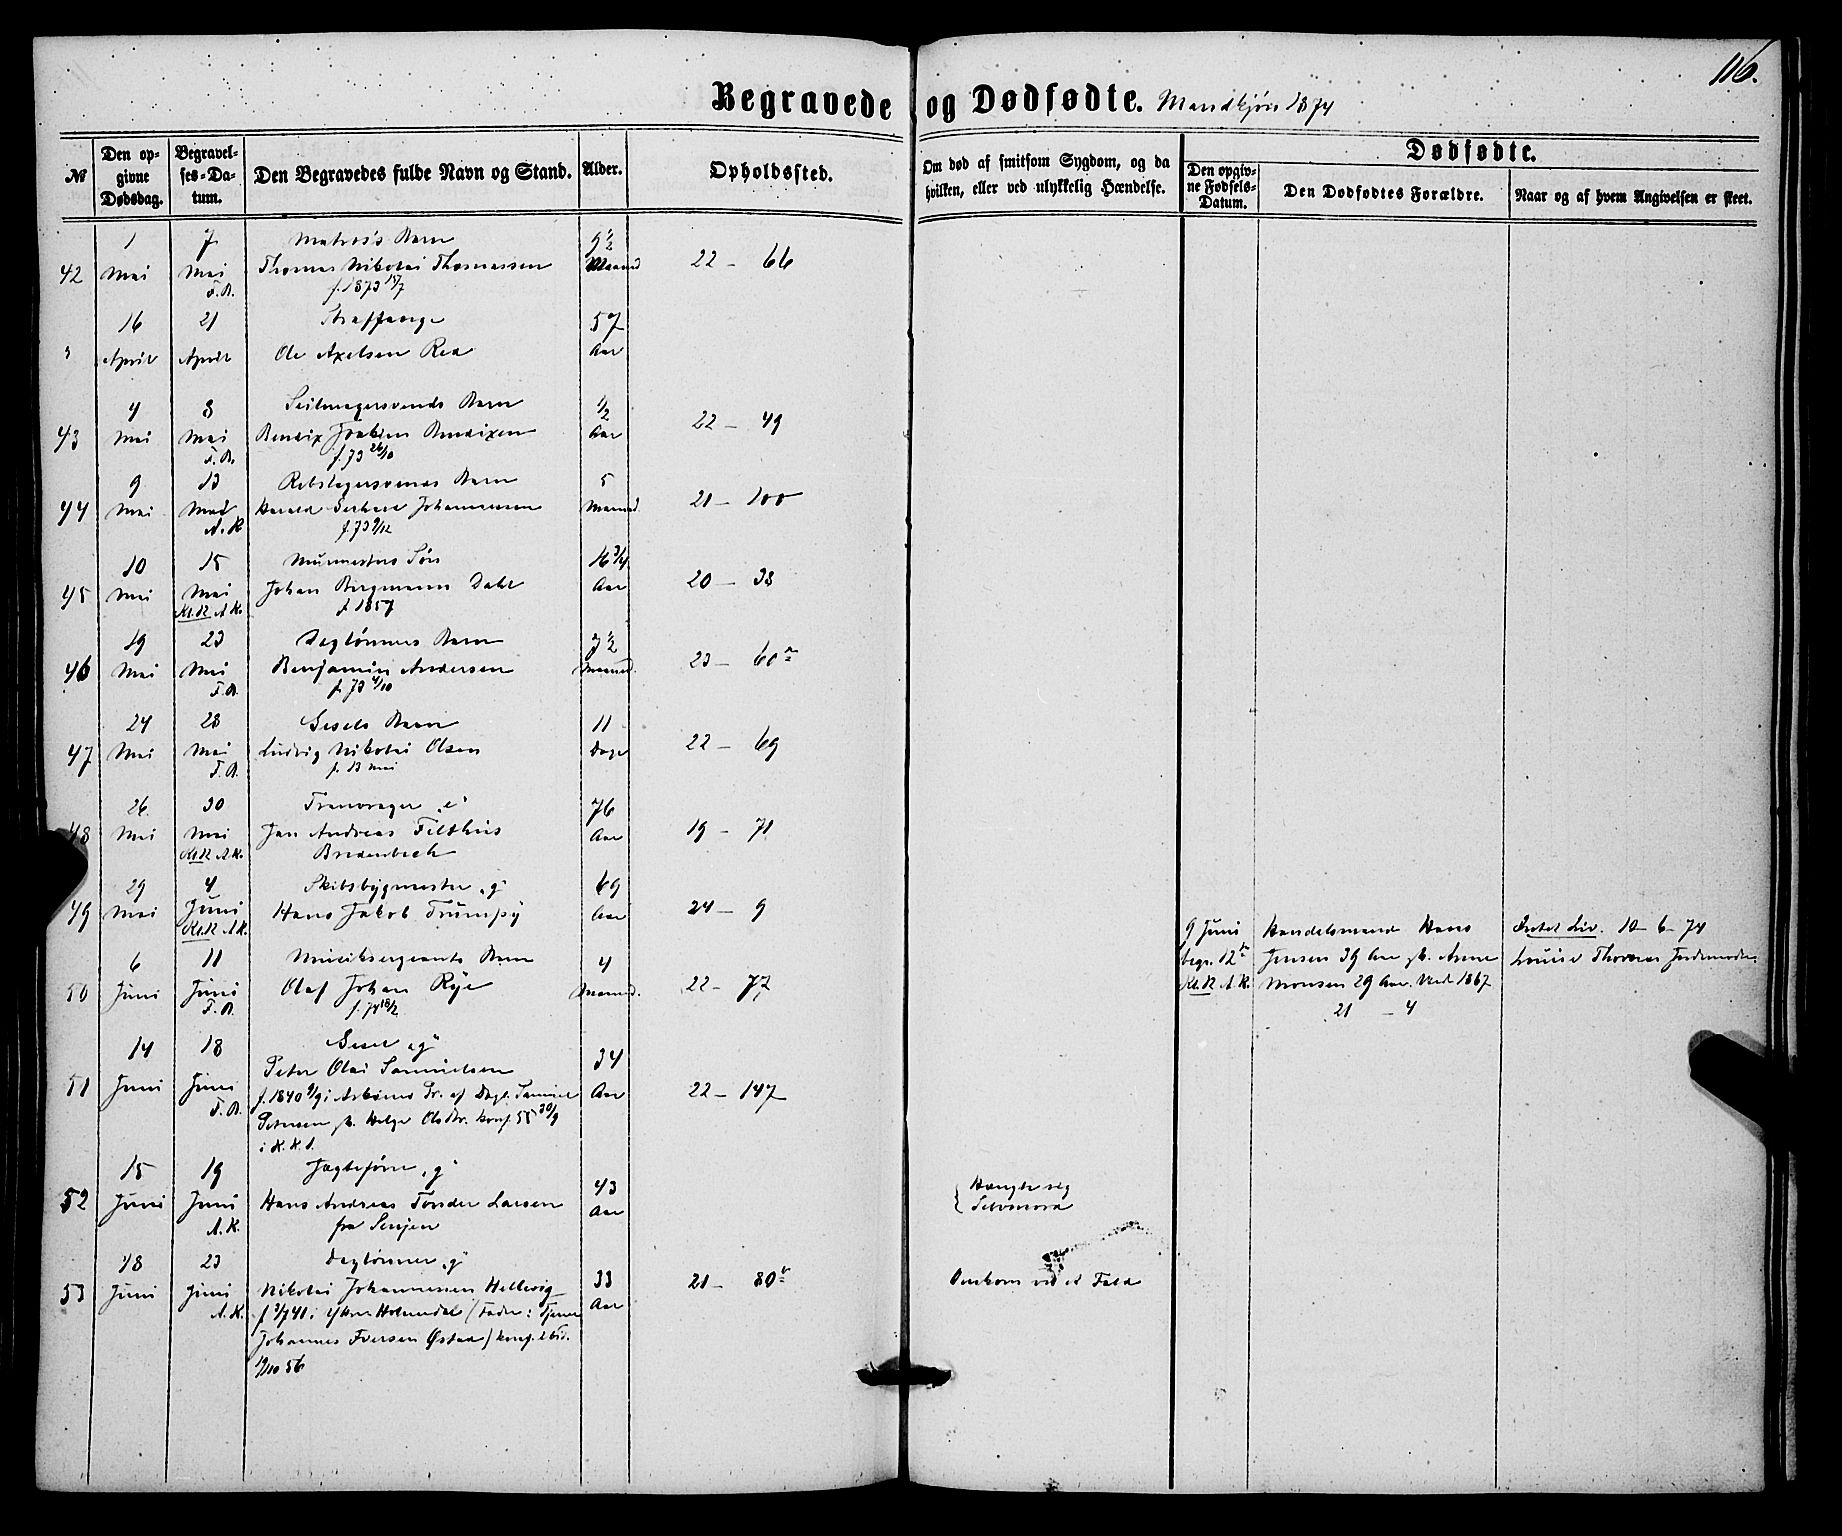 116.
Begravede og Dødfødte. Mandkjøn 1874
№
Den opgivne Dødsdag.
Begravelses-Datum.
Den Begravedes fulde Navn og Stand.
Alder.
Opholdssted.
Om død af smitsom Sygdom, og da hvilken, eller ved ulykkelig Hændelse.
Dødfødte.
Den opgivne Fødsels-Datum.
Den Dødfødtes Forældre.
Naar og af hvem Angivelsen er skeet.
1 7 Matros's Barn 9½
42 Mai Mai Thomas Nikolai Thomassen Maaned 22 – 66
F.B. f. 1873 18/7
16 21 Straffange 57
April April Ole Axelsen Rea Aar
4 8 Seilmagersvends Barn ½
43 Mai Mai Bendix Bendixen Aar 22 – 49
F.B. f. 73 26/10
9 13 Rebslagersvends Barn 5
44 Mai Mai Harald Johannesen Maaned 21 – 100
A.K. f. 73 9/12
10 15 Murmesters Søn 16 3/4
45 Mai Mai Johan Bergmann Dahl Aar 20 – 38
Kl.K A.K. f. 1857
19 23 Dagløners Barn 7½
46 Mai Mai Benjamin Andersen Maaned. 23 – 60
F.B. f. 73 4/10
24 28 Gesels Barn 11
47 Mai Mai Ludvig Nikolai Olsen Dage 22 – 69
F.B. f. 13 Mai
26 30 Tranvrager "e" 76
48 Mai Mai Jan Andreas Filthuus Aar 19 – 71
Kl.K A.K. Bredenbech
29 4 Skibsbygmester "g" 69
49 Mai Juni Hans Jakob Trumpy Aar 24 – 9
Kl.K A.K.
9 Juni Handelsmand Hans Intet Liv. 10 – 6 – 74
begr. 12 Jensen 39 Aar gt. Anne Louise Thoresen Jordemoder
Kl.K A.K. Monsen 29 Aar. Viet 1867
21 – 4
6 11 Musiksergeants Barn 4
50 Juni Juni Olaf Johan Rye Maaned. 22 – 77
F.B. f. 74 18/2
14 18 Gesel "g" 34
Peter Olai Samuelsen
51 Juni Juni f. 1840 9/9 i Askøens Pr. af Dagl. Samuel Aar 22 – 147
F.B. Petersen gt. Helge Olsdtr. konf. 55 30/9
i K.K.
15 19 Jagtefører "g" 43
52 Juni Juni Hans Andreas Tønder Larsen Aar
A.K. fra Senjen
Hængte sig
Selvmord
18 23 Dagløner "g" 33
53 Juni Juni Nikolai Johannessen Hellevig Aar 21 – 80
A.K. f. 3/7 41 i Ytre Holmedal (Fader: Tjener
Johannes Iversen Østad) konf. ibid.
/10 56
Omkom ved et Fald